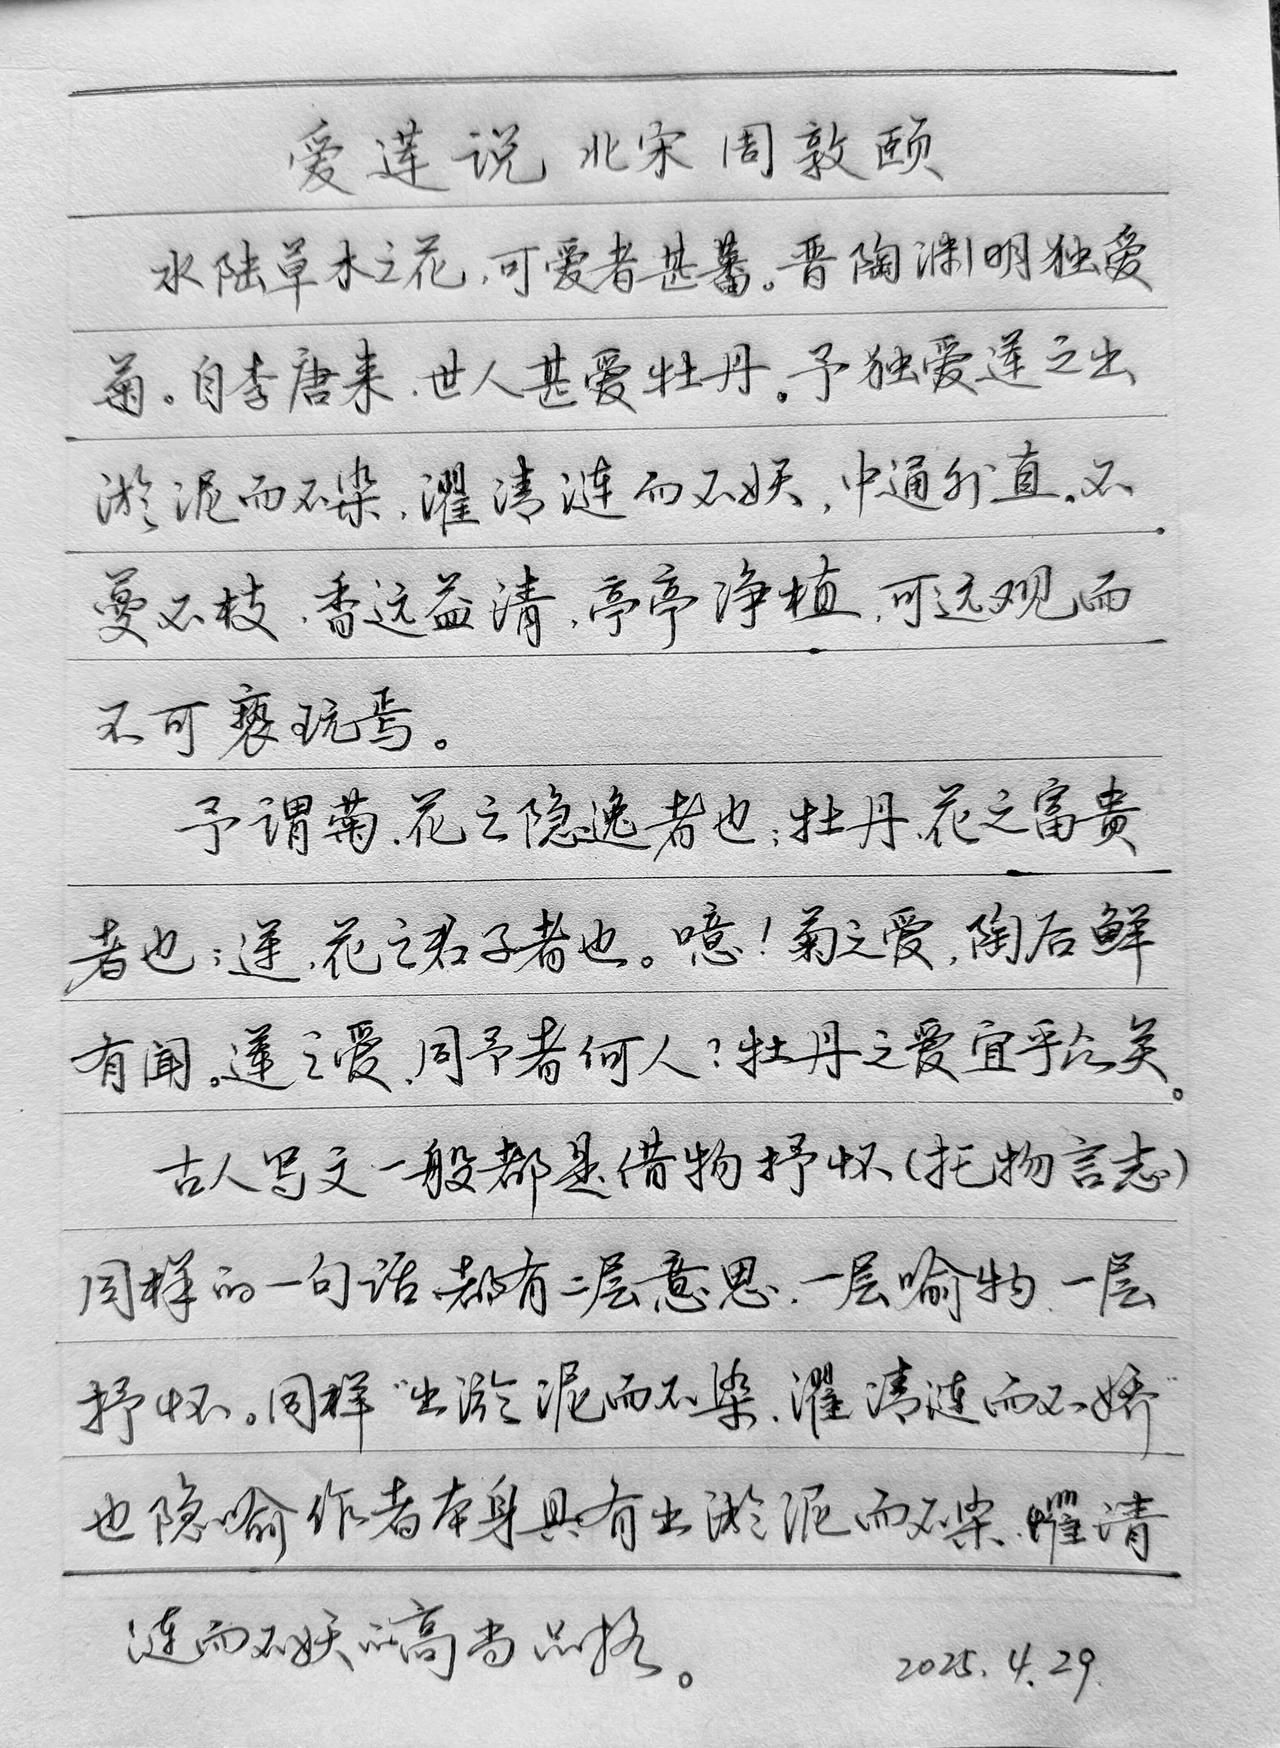 爱莲说 北宋 周敦颐
水陆草木之花,可爱者甚蕃。晋陶渊明独爱
菊。自李唐来,世人甚爱牡丹。予独爱莲之出
淤泥而不染,濯清涟而不妖,中通外直。不
蔓不枝,香远益清,亭亭净植,可远观而
不可亵玩焉。
予谓菊,花之隐逸者也;牡丹,花之富贵
者也;莲,花之君子者也。噫!菊之爱,陶后鲜
有闻。莲之爱,同予者何人?牡丹之爱宜乎众矣。
古人写文一般都是借物抒怀(托物言志)
同样的一句话都有二层意思,一层喻物,一层
抒怀。同样“出淤泥而不染,濯清涟而不娇”
也隐喻作者本身具有出淤泥而不染,濯清
涟而不妖的高尚品格。
2025.4.29.